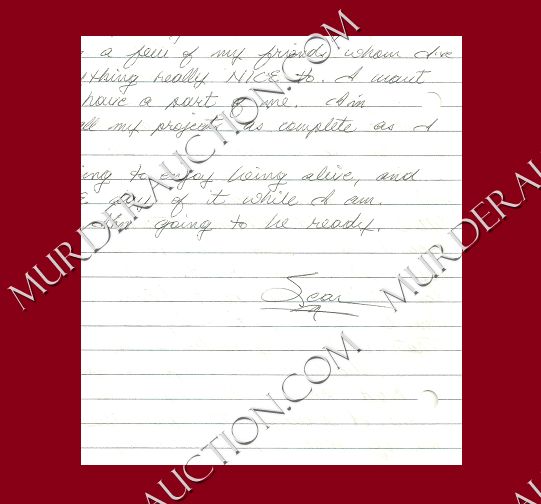 a few of my friends whom I've
thing really NICE to. I want
have a part of me. I'm
all my projects as complete as I
ing to enjoy being alive, and
of it while I am.
I'm going to be ready.
Sean
MURDERAUCTION.COM
MURDERAU
AUCTION.COM
MURDERAU